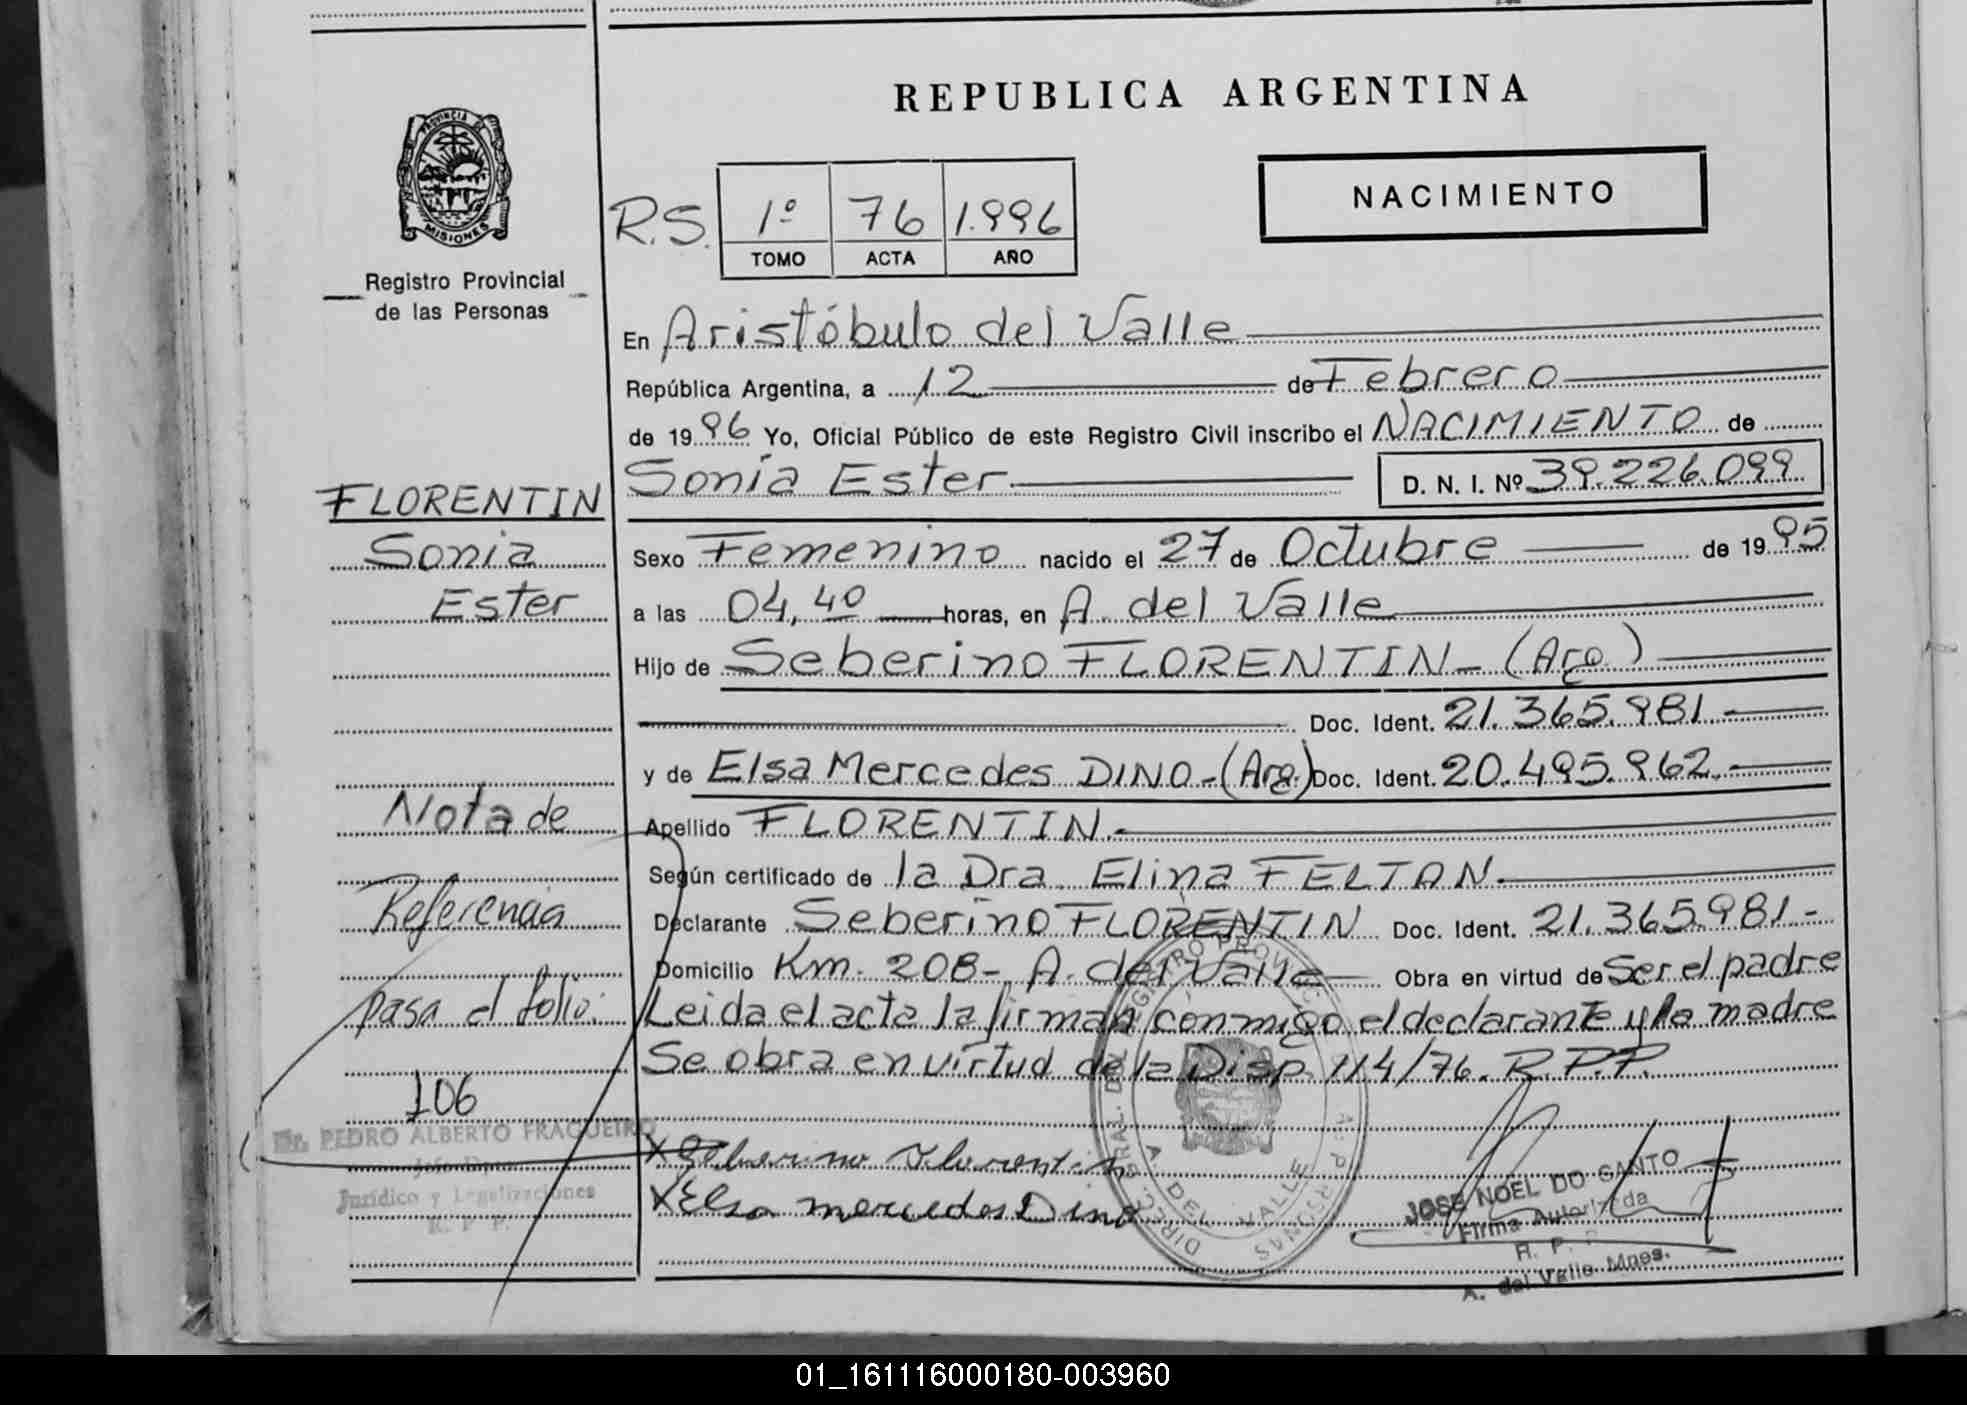 REPUBLICA ARGENTINA
PROVINCIA DE
MISIONES
Registro Provincial
de las Personas
NACIMIENTO
R.S. 1º 76 1.996
TOMO ACTA AÑO
En Aristóbulo del Valle
República Argentina, a 12 de Febrero
de 1996 Yo, Oficial Público de este Registro Civil inscribo el NACIMIENTO de
Sonia Ester D. N. I. Nº 39.226.099
Sexo Femenino nacido el 27 de Octubre de 1995
a las 04,40 horas, en A. del Valle
Hijo de Seberino FLORENTIN - (Arg.)
Doc. Ident. 21.365.981
y de Elsa Mercedes DINO - (Arg.) Doc. Ident. 20.495.962
Apellido FLORENTIN
Según certificado de la Dra. Elina FELTAN
Declarante Seberino FLORENTIN Doc. Ident. 21.365.981 -
Domicilio Km. 208 - A. del Valle Obra en virtud de Ser el padre
Leida el acta la firman conmigo el declarante y la madre
Se obra en virtud de la Disp. 114/76. R.P.P.
FLORENTIN
Sonia
Ester
Nota de
Referencia
pasa al folio:
106
Dr. PEDRO ALBERTO FRAGUEIRO
Jefe Dpto.
Jurídico y Legalizaciones
R. P. P.
X Seberino Florentin
X Elsa mercedes Dino
A. DEL VALLE
JOSE NOEL DO SANTO
Firma Autorizada
R. P. P.
A. del Valle Mnes.
01_161116000180-003960